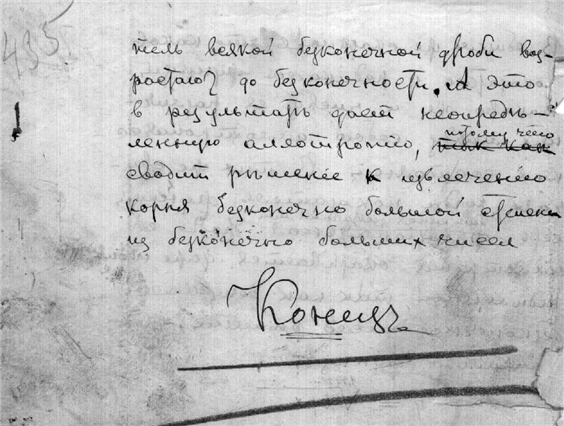 435.
тель всякой безконечной дроби воз-
ростают до безконечности. А это
в результатѣ дает неопредѣ-
ленную аллотропию, потому что
так как
сводит рѣшение к извлечению
корня безконечно большой степени
из безконечно больших чисел
Конецъ